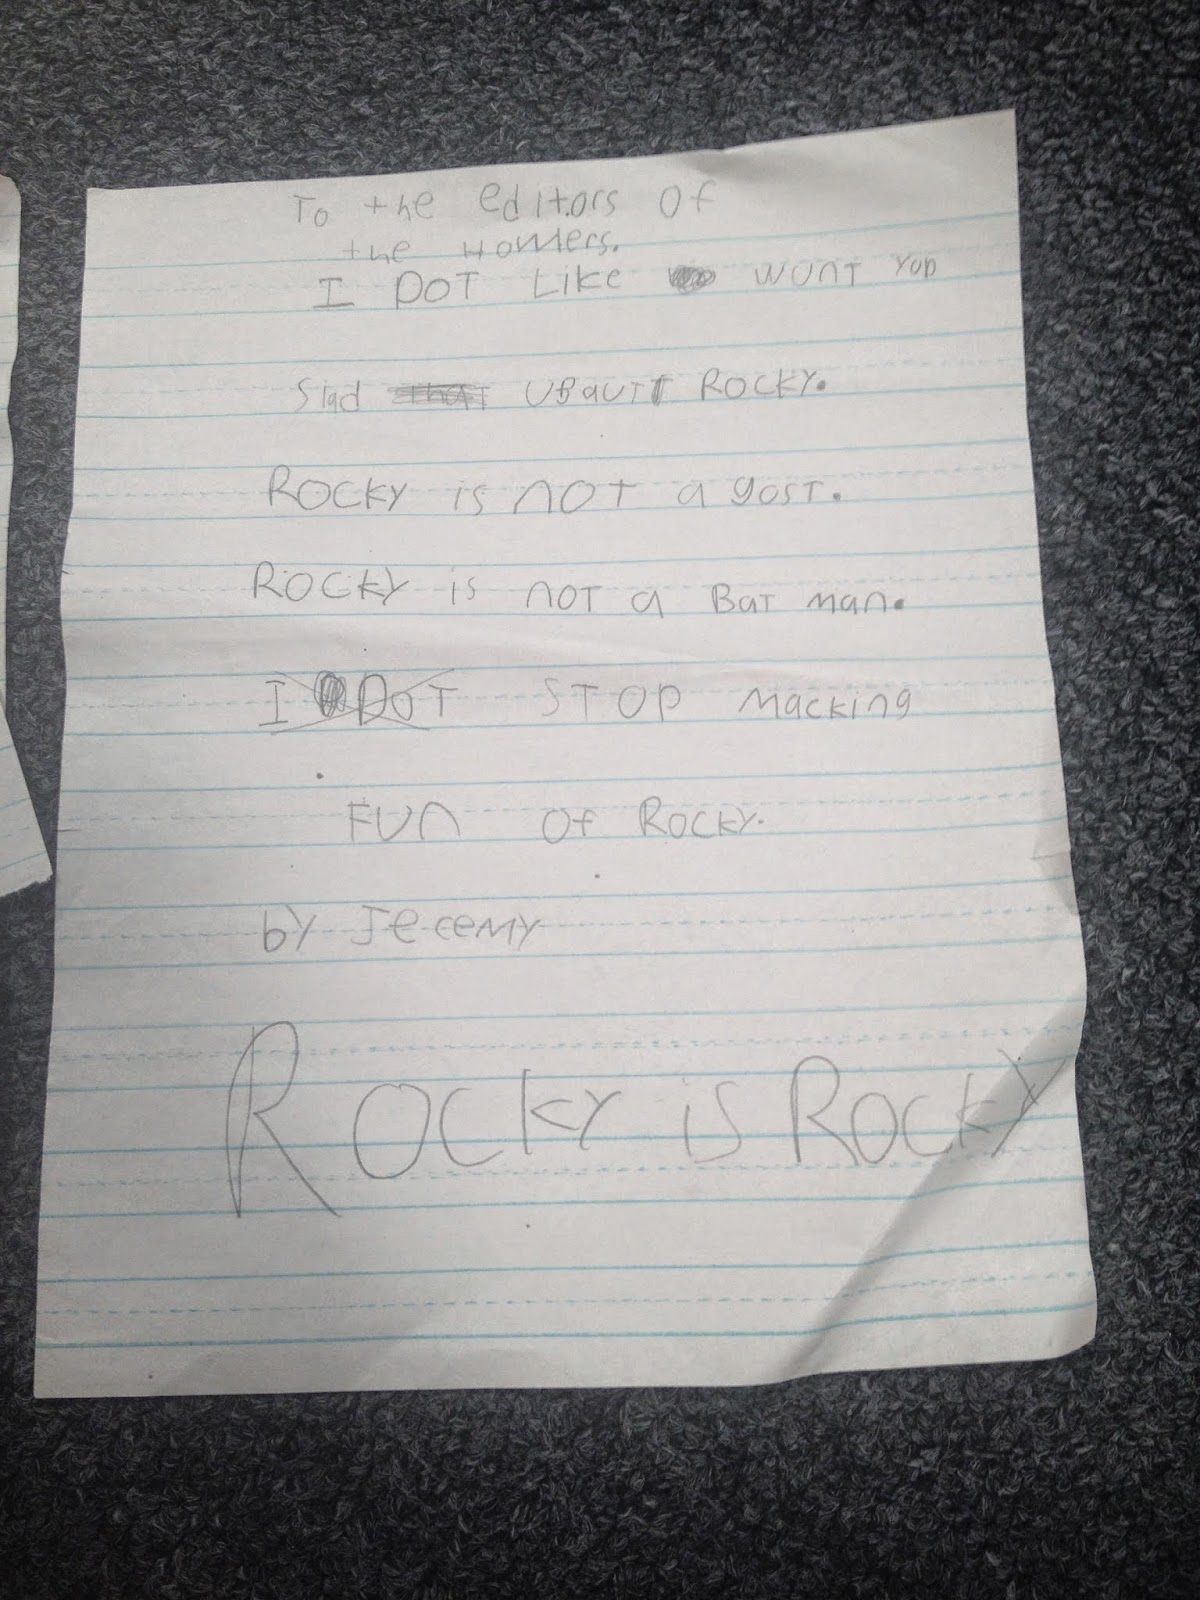 To the editors of
the Howlers.
I DOT LIKE WUNT YOU
Slad UBaUT ROCKY.
ROCKY is nOT a gosT.
ROCKY is nOT a BaT man.
I DOT STOP Macking
FUn Of ROCKY.
by Jeremy
ROCKY iS ROCKY